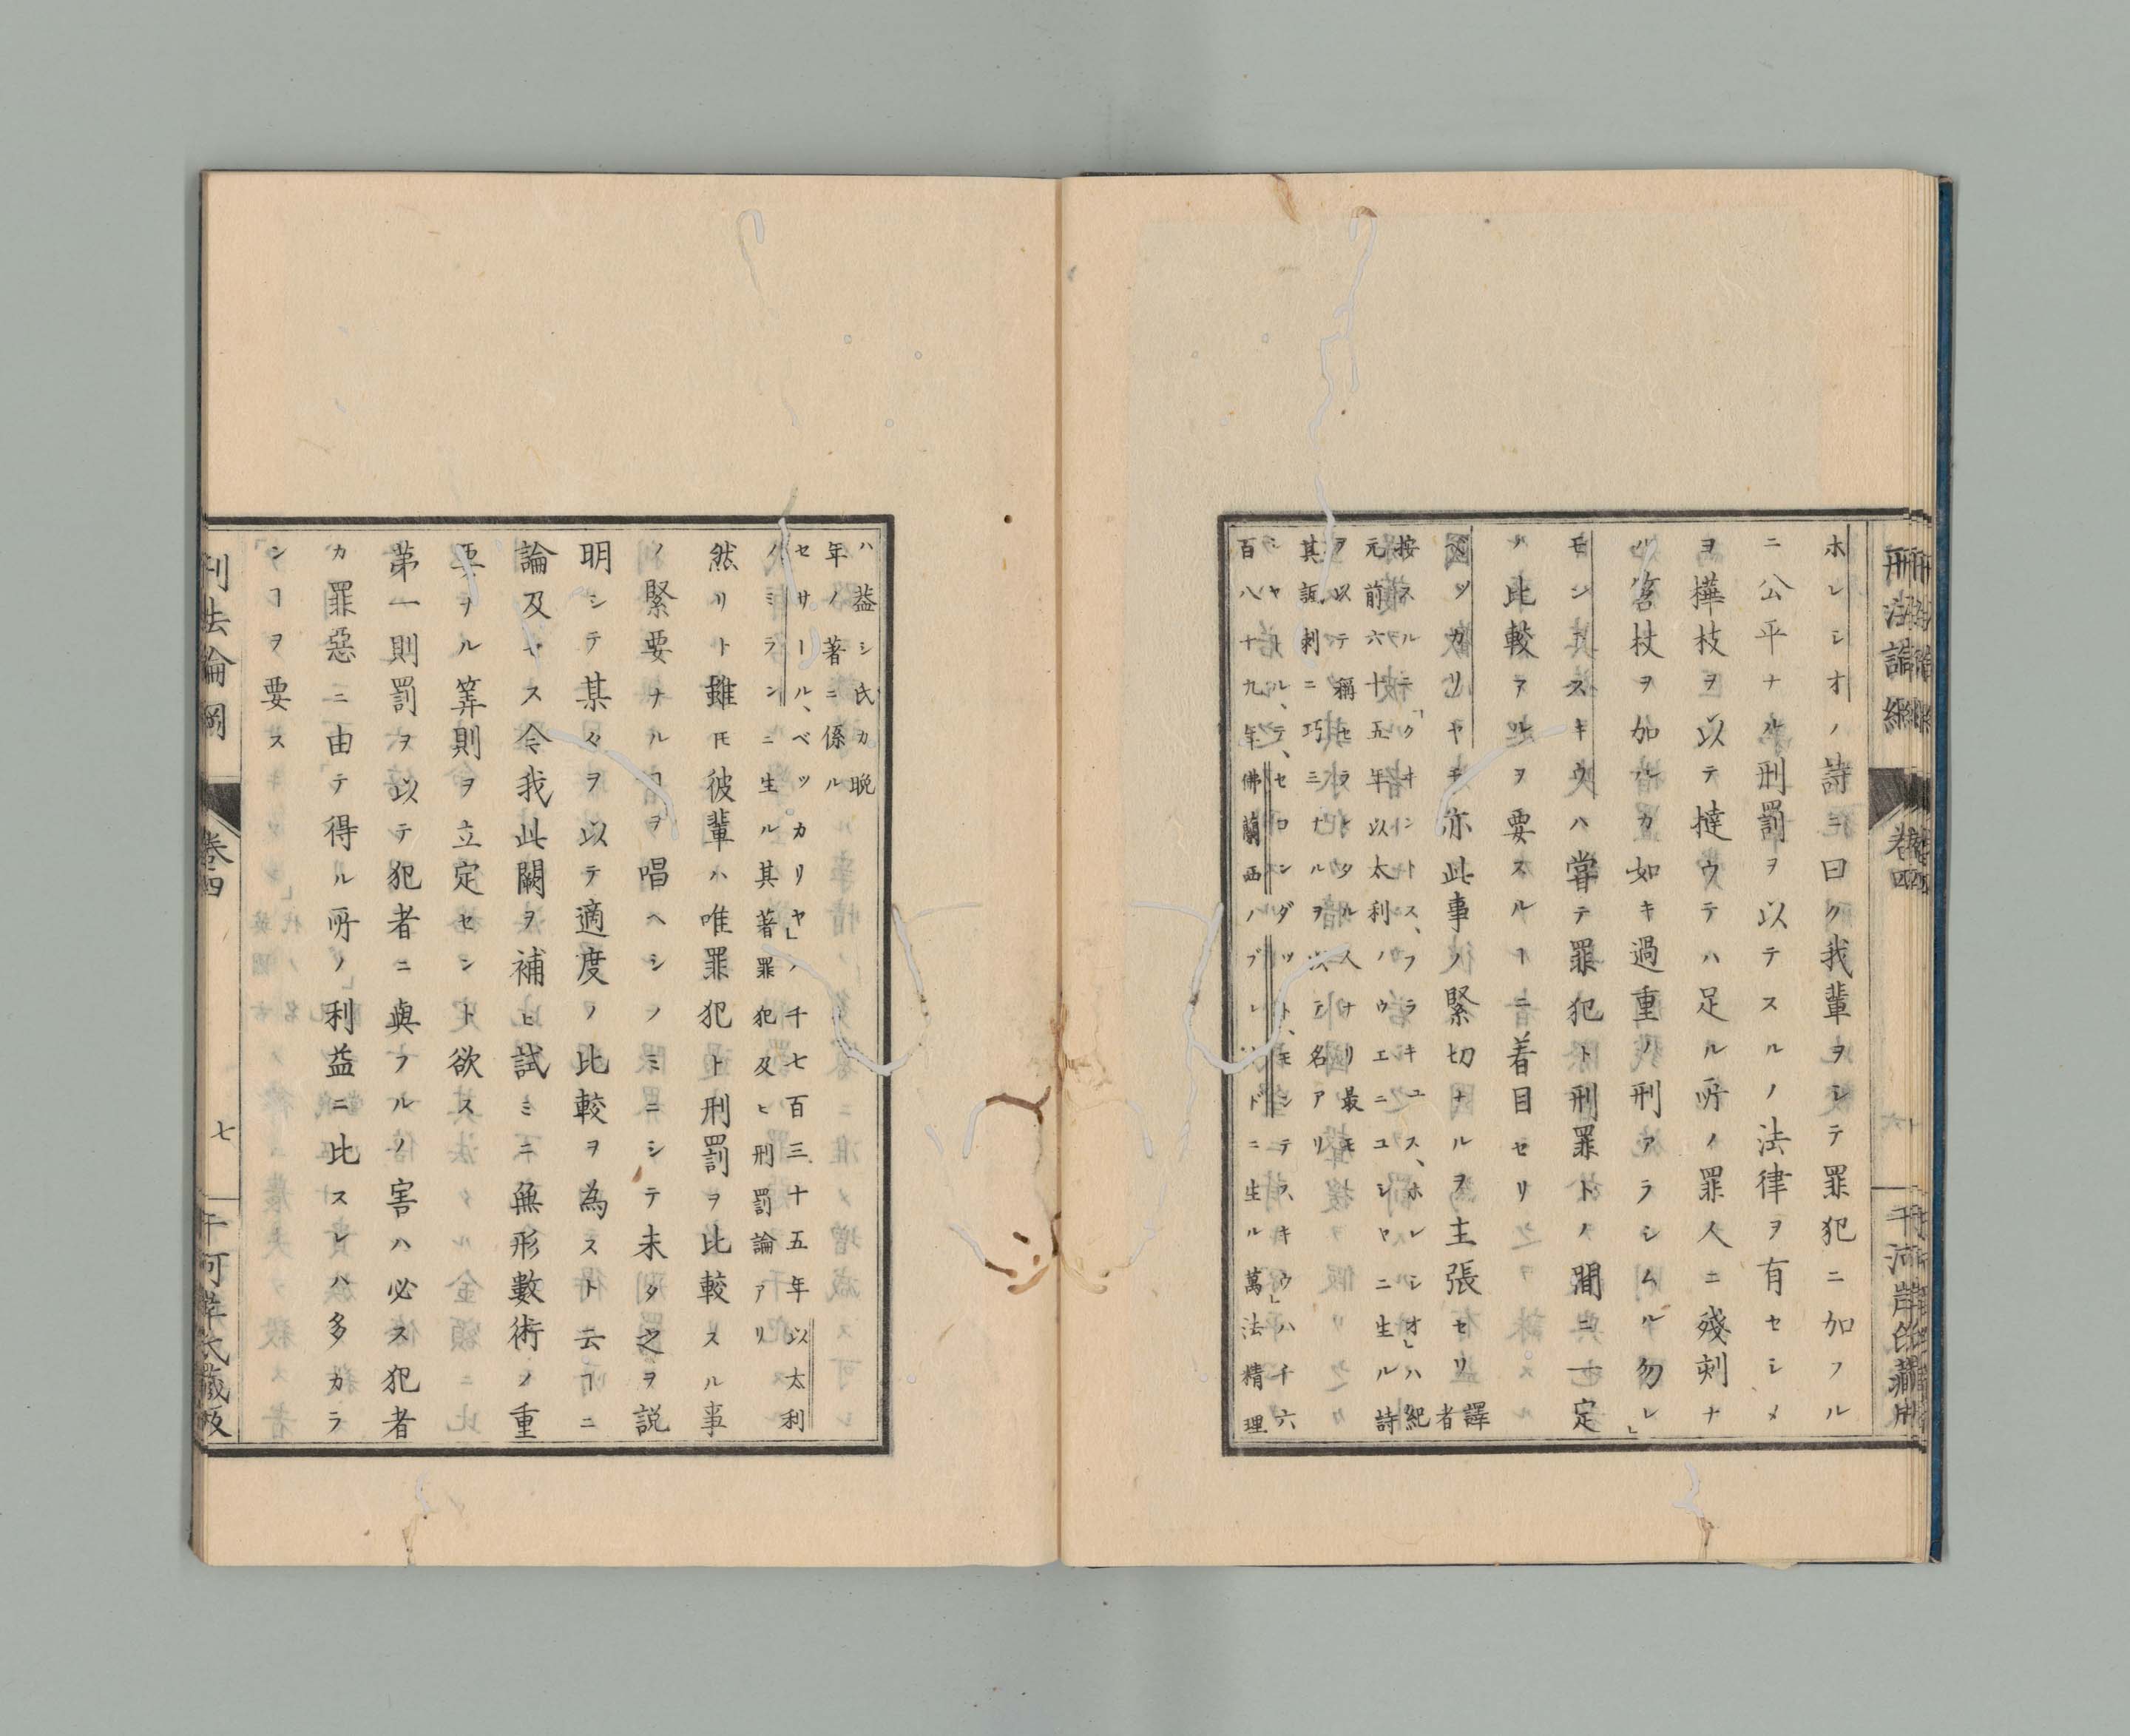 ホレシオノ詩ニ曰ク我輩ヲシテ罪犯ニ加フル
ニ公平ナル刑罰ヲ以テスルノ法律ヲ有セシメ
ヨ樺枝ヲ以テ撻ウテハ足ル所ノ罪人ニ殘刻ナ
ル笞杖ヲ加ルカ如キ過重ノ刑アラシムル勿レ」
モンテスキウハ嘗テ罪犯ト刑罪トノ間ニ一定
ノ比較アルヲ要スルヿニ着目セリ
ベッカリヤモ亦此事ノ緊切ナルヲ主張セリ譯者
按スルニ「クオントス、フラキユス、ホレシオ」ハ紀
元前六十五年以太利ノウエニユシヤニ生ル詩
ヲ以テ稱セラレタル人ナリ最モ
其諷刺ニ巧ミナルヲ以テ名アリ
シヤールル、デ、セコンダット、モンテスキウ」ハ千六
百八十九年佛蘭西ノブレットニ生ル萬法精理
刑法論綱
卷四
ハ蓋シ氏カ晩
年ノ著ニ係ル
セサール、ベッカリヤ」ノ千七百三十五年以太利
ノミランニ生ル其著罪犯及ヒ刑罰論アリ
然リト雖モ彼輩ハ唯罪犯ト刑罰ヲ比較スル事
ノ緊要ナルヿヲ唱ヘシノミニシテ未タ之ヲ説
明シテ某々ヲ以テ適度ノ比較ヲ為スト云ヿニ
論及セス今我此闕ヲ補ヒ試ミニ無形數術ノ重
要ナル筭則ヲ立定セント欲ス
第一則罰ヲ以テ犯者ニ與フルノ害ハ必ス犯者
カ罪惡ニ由テ得ル所ノ利益ニ比スレハ多カラ
ンヿヲ要ス
刑法論綱
卷四
七
千河岸氏藏版